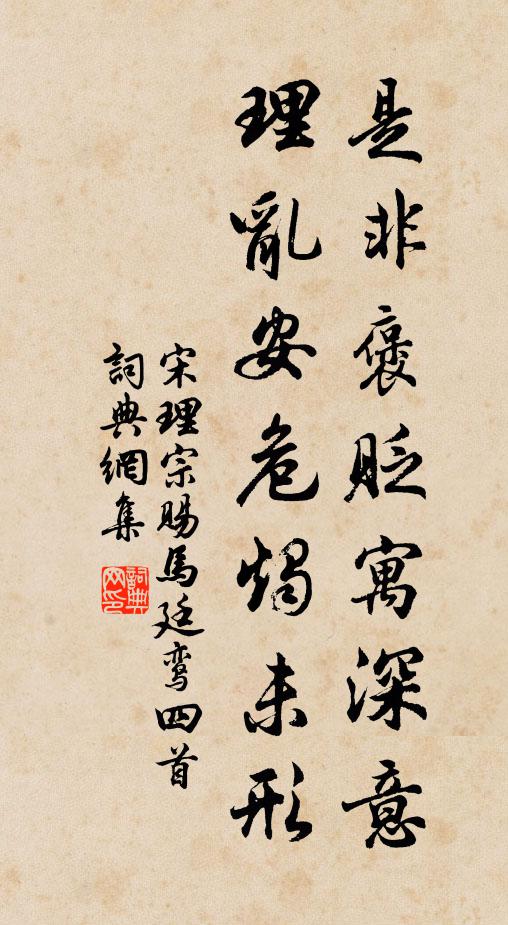 是非褒貶寓深意
理亂安危燭未形
宋理宗賜馬廷鸾四首
詞典網集
詞典網印